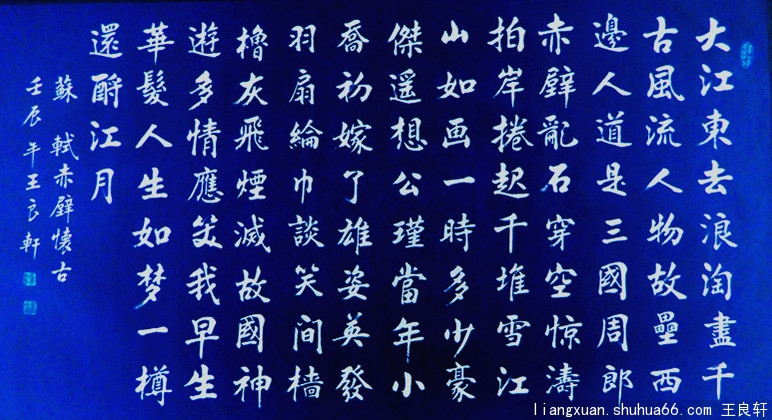 大江東去浪淘盡千
古風流人物故壘西
邊人道是三國周郎
赤壁亂石穿空惊濤
拍岸捲起千堆雪江
山如画一時多少豪
傑遥想公瑾當年小
喬初嫁了雄姿英發
羽扇綸巾談笑間檣
櫓灰飛煙滅故國神
遊多情應笑我早生
華髮人生如梦一樽
還酹江月
蘇軾赤壁懷古
壬辰年王良軒
liangxuan.shuhua66.com 王良轩